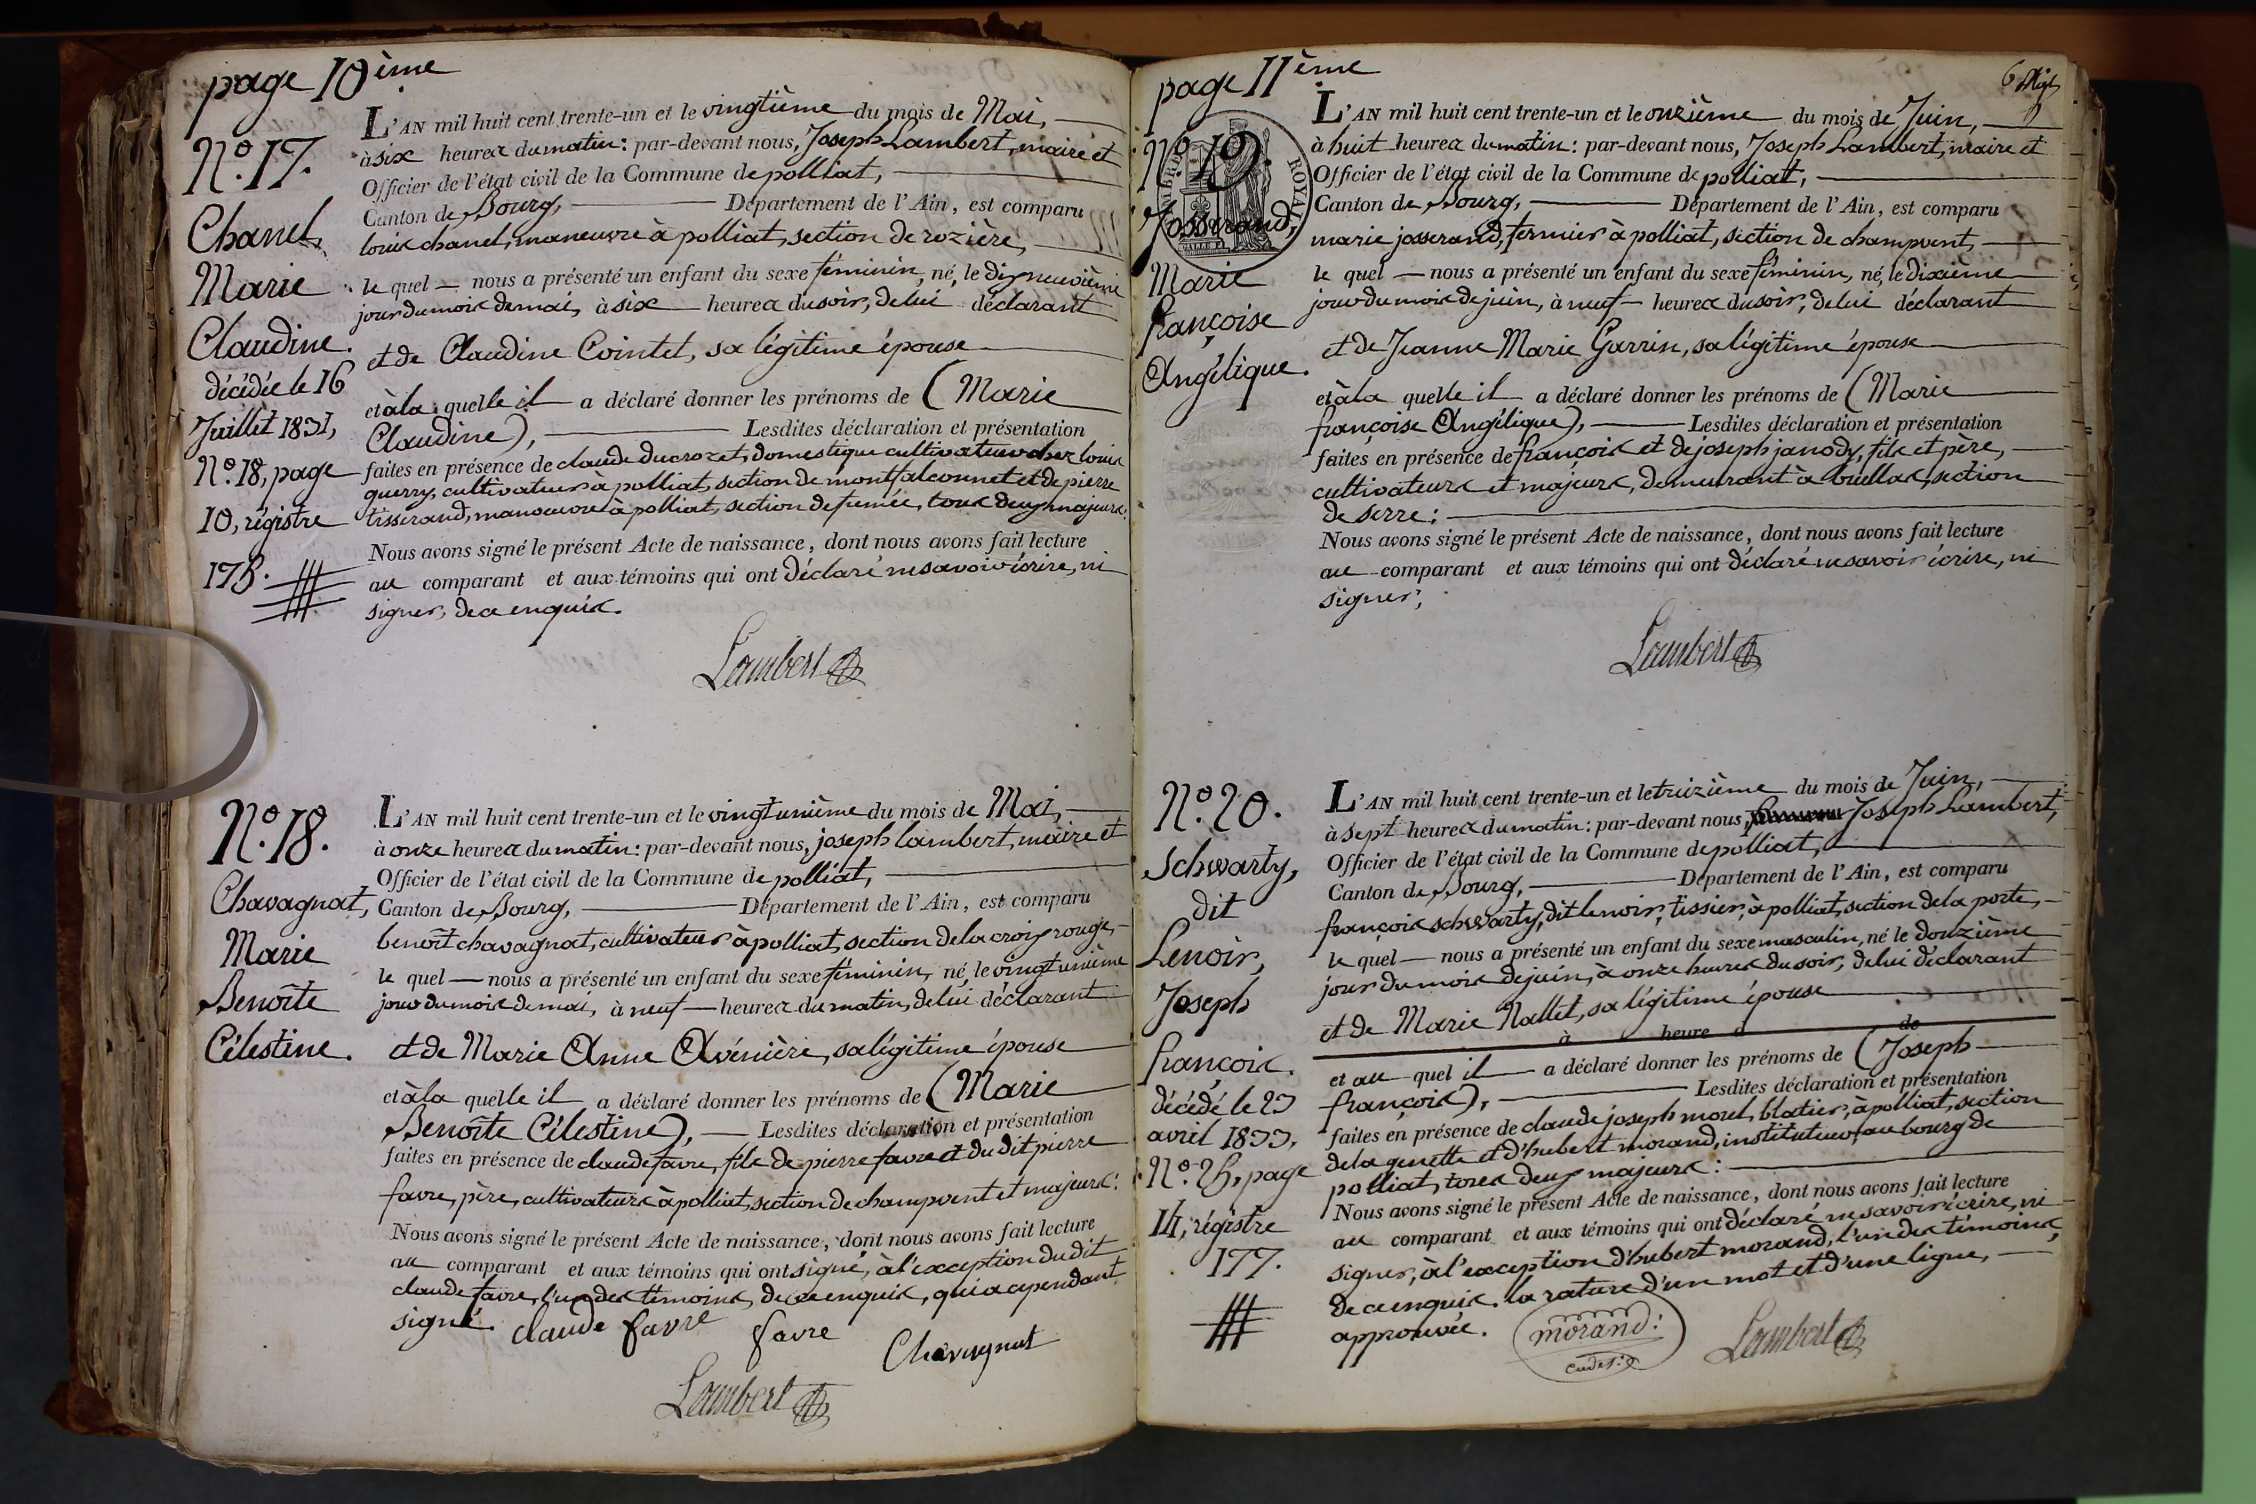 page 10ème
N.º 17.
Chanel,
Marie
Claudine.
décédée le 16
Juillet 1831,
N.º 18, page
10, régistre
175.
L'AN mil huit cent trente-un et le vingtième du mois de Mai,
à six heures du matin : par-devant nous, Joseph Lambert, maire et
Officier de l'état civil de la Commune de polliat,
Canton de Bourg, Département de l'Ain, est comparu
louis chanel, maneuvre à polliat, section de rozière,
le quel nous a présenté un enfant du sexe féminin, né, le dixneuvième
jour du mois de mai, à six heures du soir, de lui déclarant
et de Claudine Cointet, sa légitime épouse
et à la quelle il a déclaré donner les prénoms de (Marie
Claudine), Lesdites déclaration et présentation
faites en présence de claude ducrozet, domestique cultivateur chez louis
querry, cultivateur à polliat, section de montfalconnet et de pierre
tisserand, manoeuvre à polliat, section de fumée, tous deux majeurs :
Nous avons signé le présent Acte de naissance, dont nous avons fait lecture
au comparant et aux témoins qui ont déclaré ne savoir écrire, ni
signer, de ce enquis.
Lambert
N.º 18.
Chavagnat,
Marie
Benoîte
Célestine.
L'AN mil huit cent trente-un et le vingt unième du mois de Mai,
à onze heures du matin : par-devant nous, joseph lambert, maire et
Officier de l'état civil de la Commune de polliat,
Canton de Bourg, Département de l'Ain, est comparu
benoît chavagnat, cultivateur à polliat, section de la croix rouge,
le quel nous a présenté un enfant du sexe féminin, né, le vingt unième
jour du mois de mai, à neuf heures du matin, de lui déclarant
et de Marie Anne Avénière, sa légitime épouse
et à la quelle il a déclaré donner les prénoms de (Marie
Benoîte Célestine), Lesdites déclaration et présentation
faites en présence de claude favre, fils de pierre favre et du dit pierre
favre, père, cultivateurs à polliat, section de champvent et majeurs :
Nous avons signé le présent Acte de naissance, dont nous avons fait lecture
au comparant et aux témoins qui ont signé, à l'exception du dit
claude favre, l'un des témoins, de ce enquis, qui a cependant
signé. claude favre favre Chavagnat
Lambert
page 11ème
N.º 19.
Josserand,
Marie
françoise
Angélique.
ROYAL
L'AN mil huit cent trente-un et le onzième du mois de Juin,
à huit heures du matin : par-devant nous, Joseph Lambert, maire et
Officier de l'état civil de la Commune de polliat,
Canton de Bourg, Département de l'Ain, est comparu
marie josserand, fermier à polliat, section de champvent,
le quel nous a présenté un enfant du sexe féminin, né, le dixième
jour du mois de juin, à neuf heures du soir, de lui déclarant
et de Jeanne Marie Garrin, sa légitime épouse
et à la quelle il a déclaré donner les prénoms de (Marie
françoise Angélique), Lesdites déclaration et présentation
faites en présence de françois et de joseph janody, fils et père,
cultivateurs et majeurs, demeurant à buellas, section
de serre :
Nous avons signé le présent Acte de naissance, dont nous avons fait lecture
au comparant et aux témoins qui ont déclaré ne savoir écrire, ni
signer,
Lambert
N.º 20.
Schwarty,
dit
Lenoir,
Joseph
françois.
décédé le 23
avril 1833,
N.º 25, page
14, régistre
177.
L'AN mil huit cent trente-un et le treizième du mois de Juin,
à sept heures du matin : par-devant nous, Joseph Lambert,
Officier de l'état civil de la Commune de polliat,
Canton de Bourg, Département de l'Ain, est comparu
françois schwarty, dit lenoir, tissier, à polliat, section de la porte,
le quel nous a présenté un enfant du sexe masculin, né le douzième
jour du mois de juin, à onze heures du soir, de lui déclarant
et de Marie Nallet, sa légitime épouse
à heure d de
et au quel il a déclaré donner les prénoms de (Joseph
françois), Lesdites déclaration et présentation
faites en présence de claude joseph morel, blatier, à polliat, section
de la genette et d'hubert morand, instituteur, au bourg de
polliat, tous deux majeurs :
Nous avons signé le présent Acte de naissance, dont nous avons fait lecture
au comparant et aux témoins qui ont déclaré ne savoir écrire, ni
signer, à l'exception d'hubert morand, l'un des témoins,
de ce enquis. la rature d'un mot et d'une ligne,
approuvée. morand : Lambert